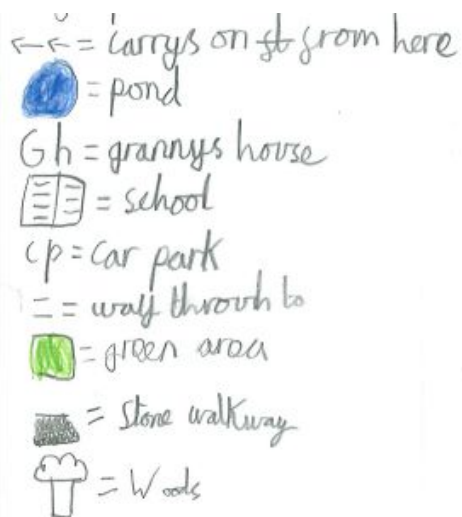 ←← = carrys on from here
= pond
Gh = grannys house
= school
cp = car park
= = way throuh to
= green area
= Stone walkway
= Woods